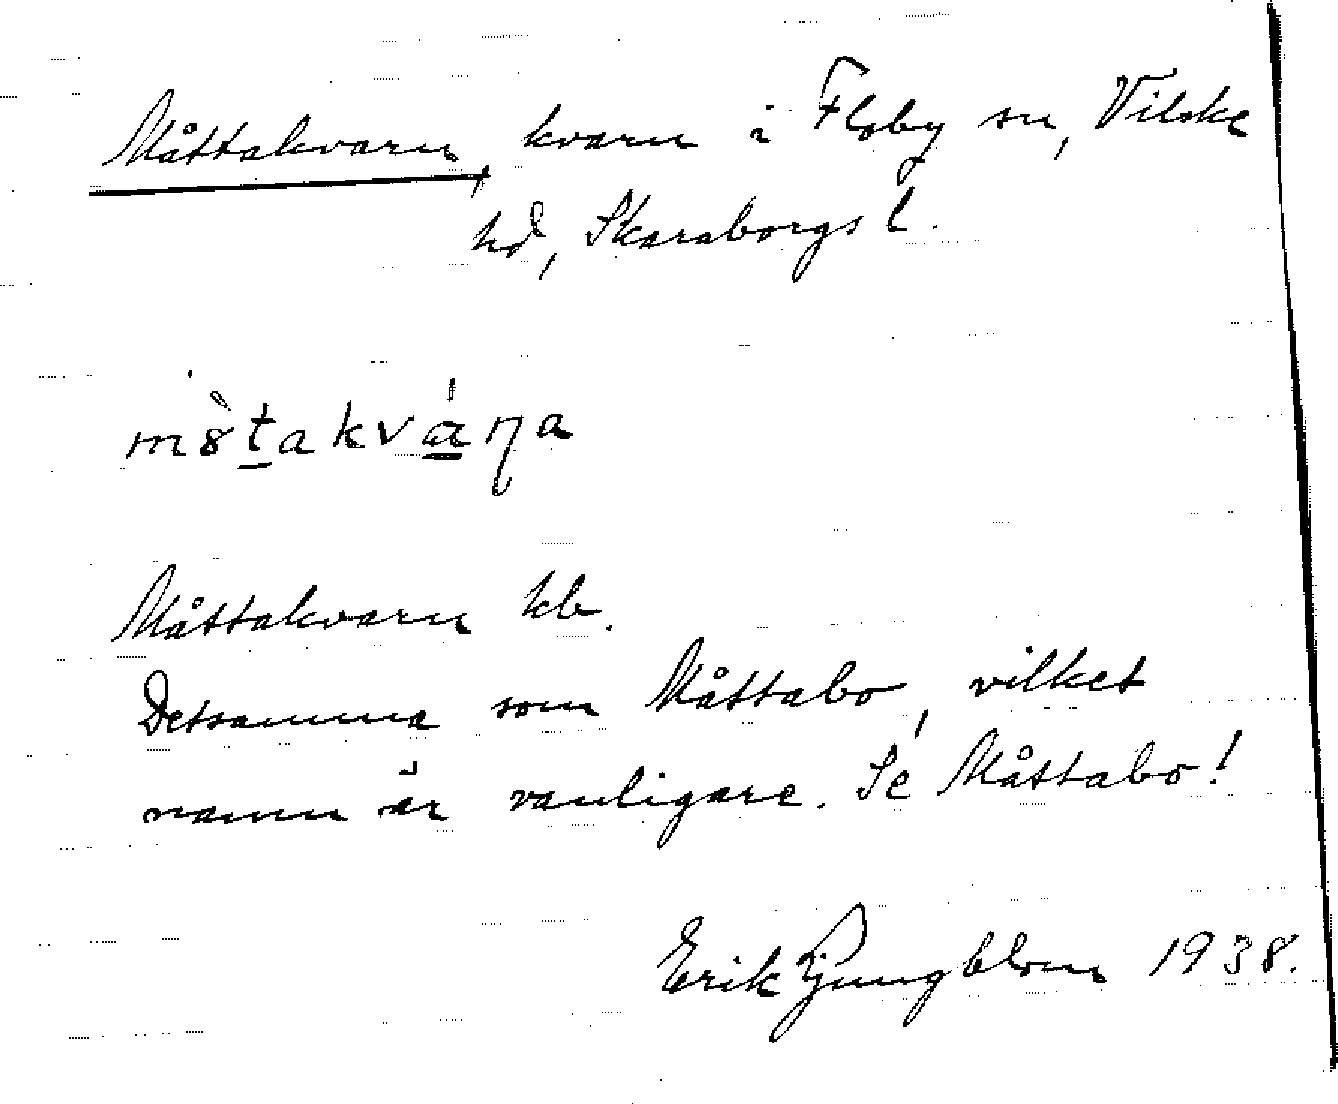 Måttakvarn, kvarn i Floby sn, Vilske
hd, Skaraborgs l.
m8̀t̲akvá̲ɳa
Måttakvarn kb.
Detsamma som Måttabo, vilket
namn är vanligare. Se Måttabo!
Erik Ljungblom 1938.